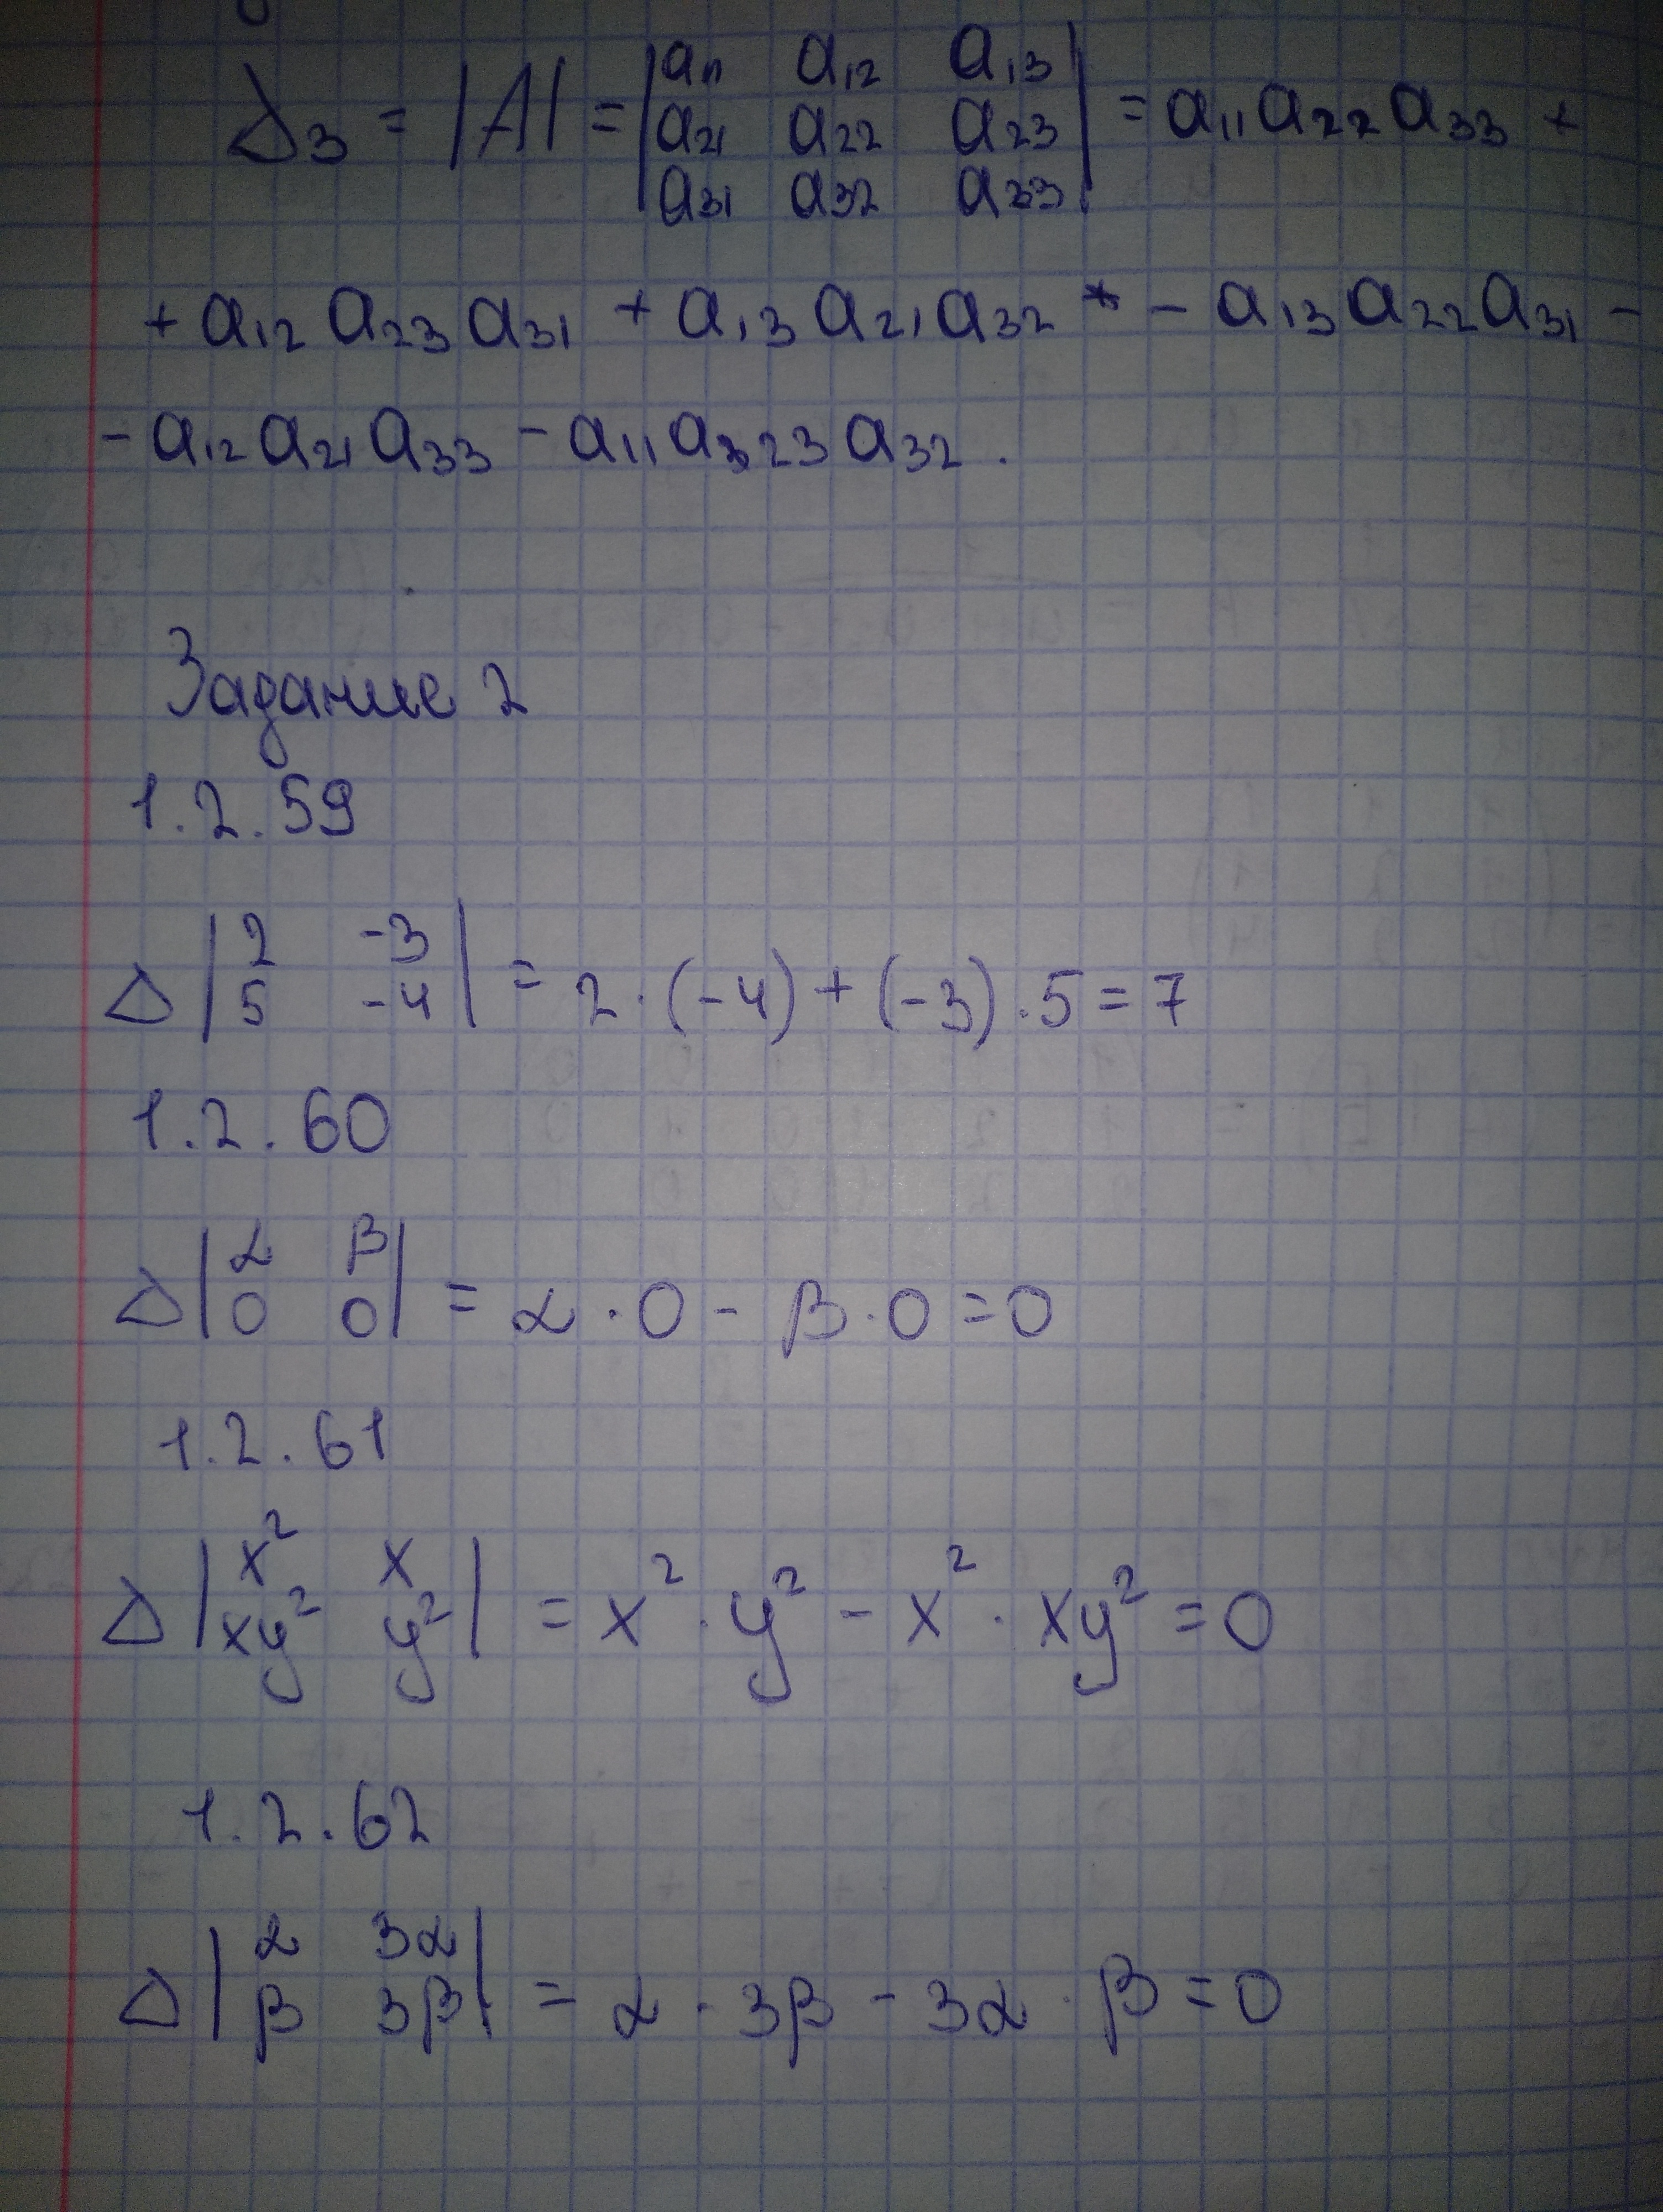 Δ₃ = |A| = | a₁₁ a₁₂ a₁₃ | = a₁₁a₂₂a₃₃ +
| a₂₁ a₂₂ a₂₃ |
| a₃₁ a₃₂ a₃₃ |
+ a₁₂a₂₃a₃₁ + a₁₃a₂₁a₃₂ - a₁₃a₂₂a₃₁ -
- a₁₂a₂₁a₃₃ - a₁₁a₂₃a₃₂.
Задание 2
1.2.59
Δ | 2 -3 | = 2·(-4) + (-3)·5 = 7
| 5 -4 |
1.2.60
Δ | α β | = α·0 - β·0 = 0
| 0 0 |
1.2.61
Δ | x² x | = x²·y² - x²·xy² = 0
| xy² y² |
1.2.62
Δ | α 3α | = α·3β - 3α·β = 0
| β 3β |